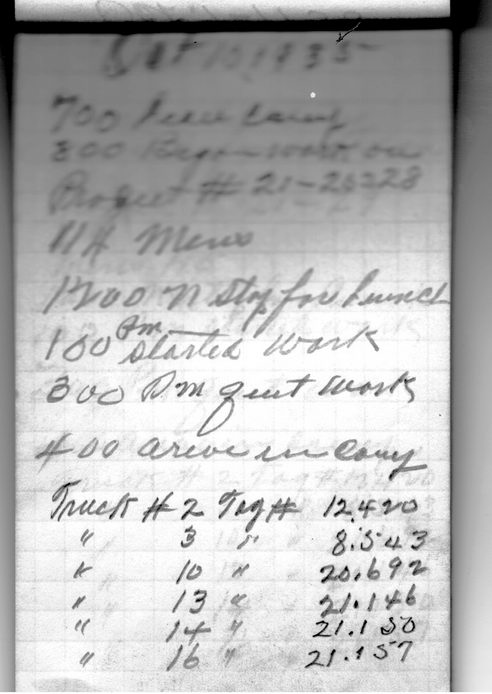 Oct 10, 1935
700 leave camp
800 Began work on
Project # 21-20228
114 Menn
1200 N stop for Lunch
100 Pm Started work
300 P M quit work
400 arive in Camp
Truck # 2 Tag # 12.420
" 3 " 8.543
" 10 " 20.692
" 13 " 21.146
" 14 " 21.150
" 16 " 21.157